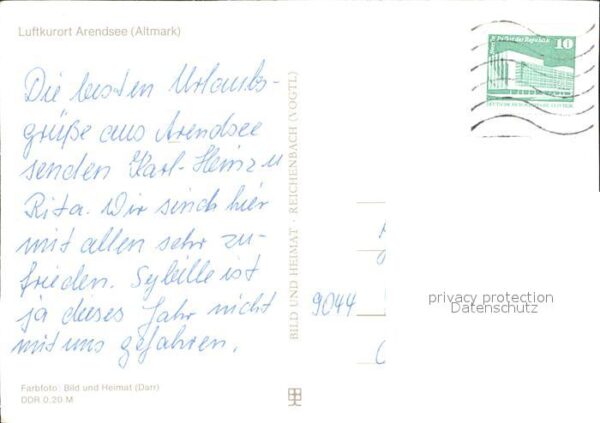 Luftkurort Arendsee (Altmark)
Die besten Urlaubs-
grüße aus Arendsee
senden Karl-Heinz u
Rita. Wir sind hier
mit allen sehr zu-
frieden. Sybille ist
ja dieses Jahr nicht
mit uns gefahren.
Farbfoto: Bild und Heimat (Darr)
DDR 0,20 M
BILD UND HEIMAT · REICHENBACH (VOGTL)
10
Palast der Republik
9044
privacy protection
Datenschutz